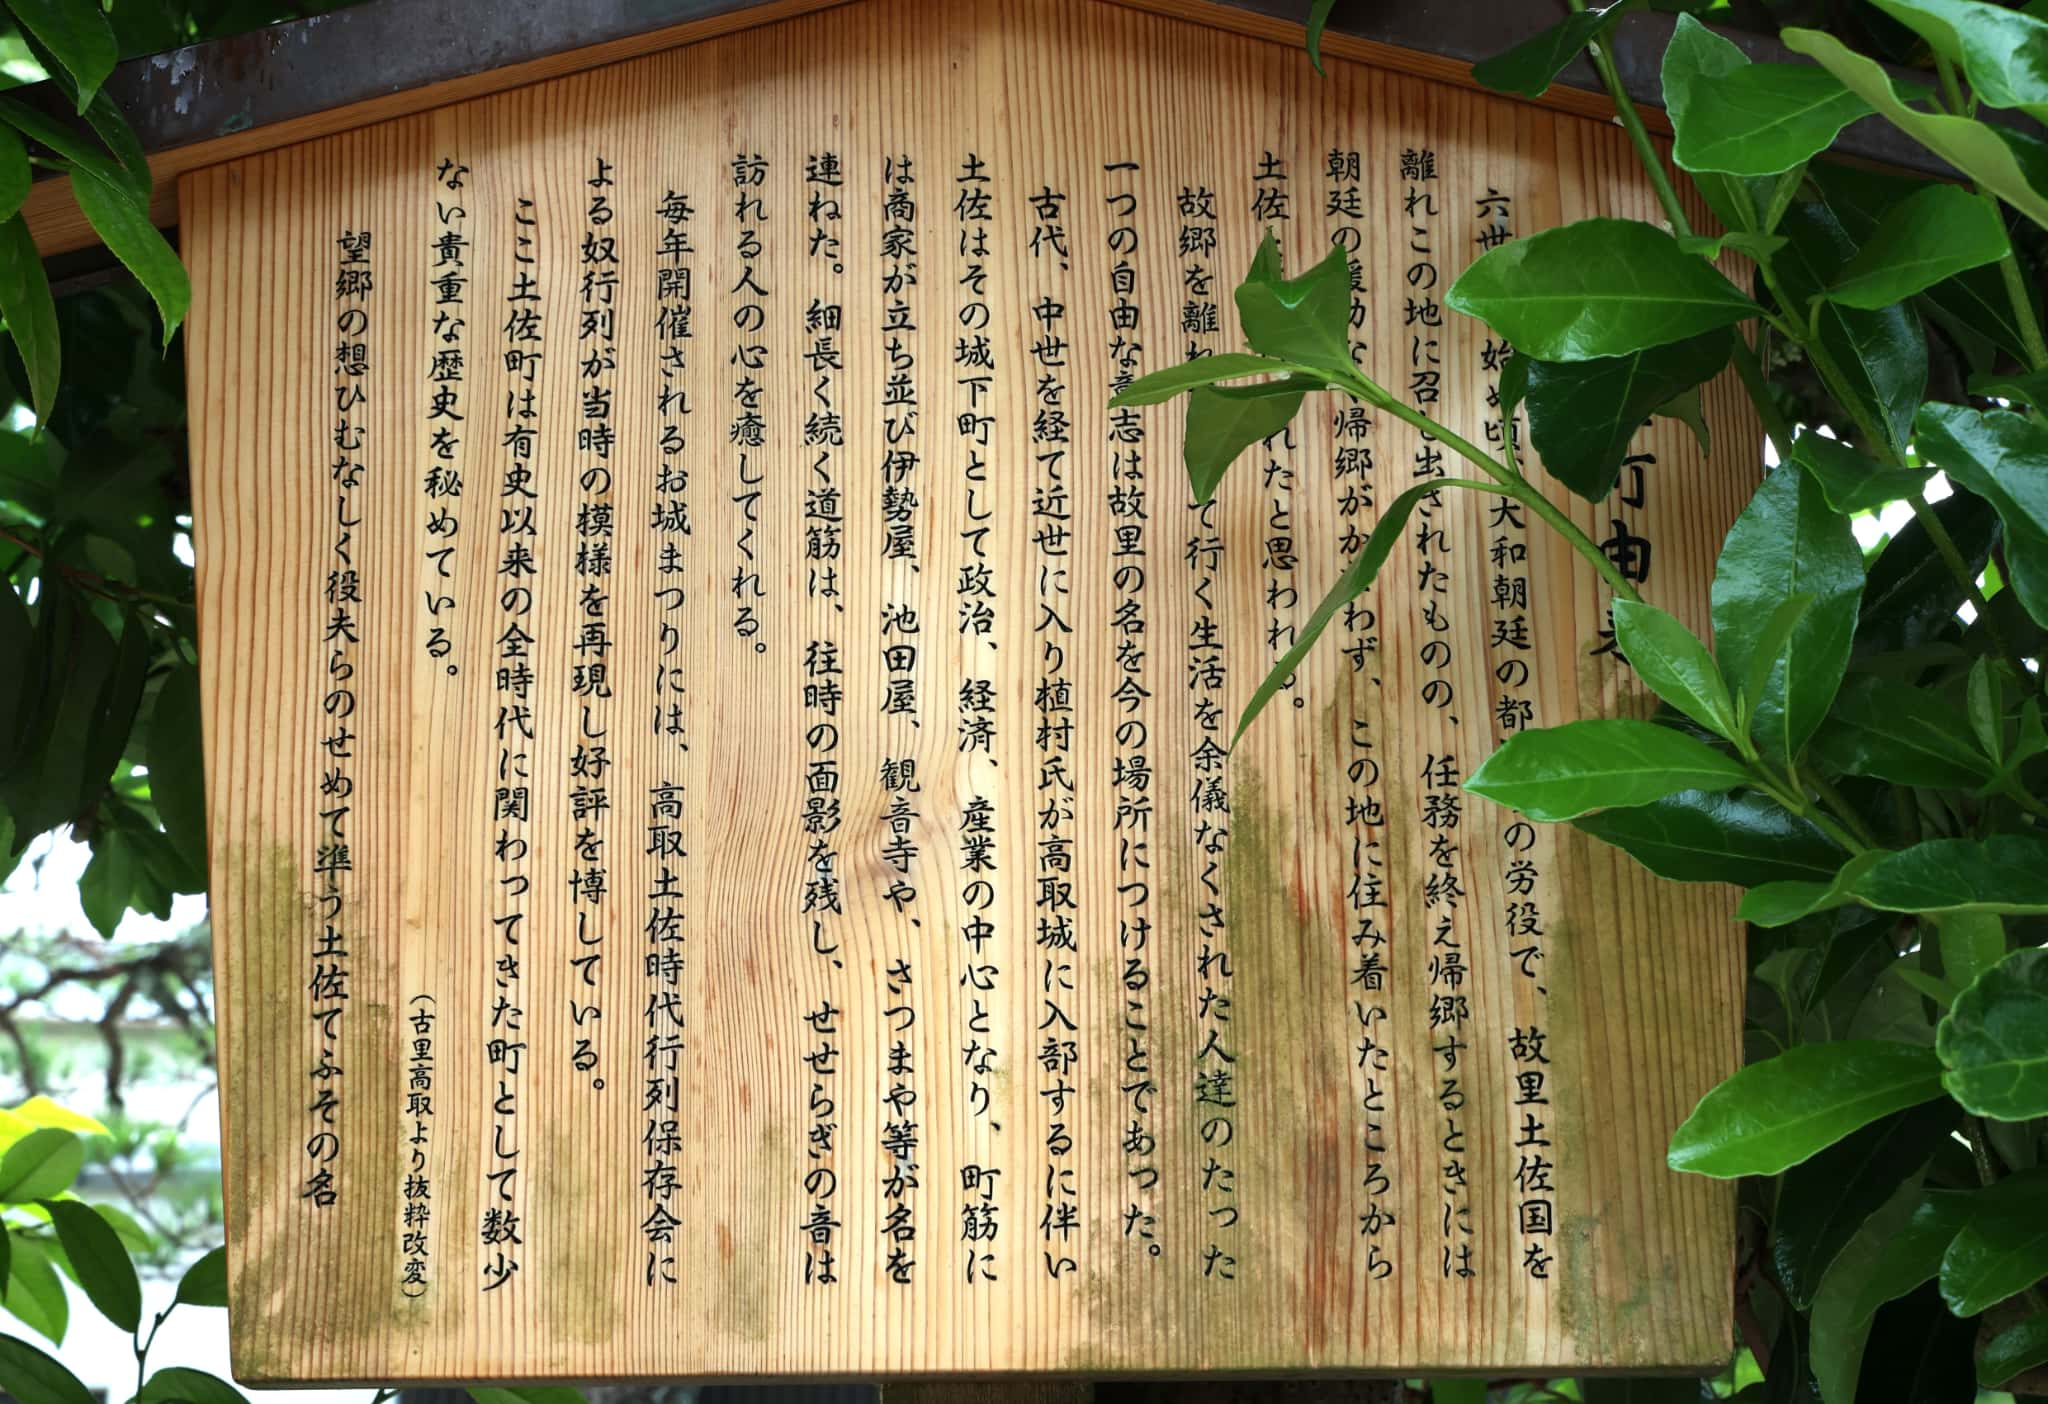 町由来
六世 始め頃、大和朝廷の都 の労役で、故里土佐国を
離れこの地に召し出されたものの、任務を終え帰郷するときには
朝廷の援助なく帰郷がかなわず、この地に住み着いたところから
土佐 れたと思われる。
故郷を離れ て行く生活を余儀なくされた人達のたった
一つの自由な意志は故里の名を今の場所につけることであった。
古代、中世を経て近世に入り植村氏が高取城に入部するに伴い
土佐はその城下町として政治、経済、産業の中心となり、町筋に
は商家が立ち並び伊勢屋、池田屋、観音寺や、さつまや等が名を
連ねた。細長く続く道筋は、往時の面影を残し、せせらぎの音は
訪れる人の心を癒してくれる。
毎年開催されるお城まつりには、高取土佐時代行列保存会に
よる奴行列が当時の模様を再現し好評を博している。
ここ土佐町は有史以来の全時代に関わってきた町として数少
ない貴重な歴史を秘めている。
（古里高取より抜粋改変）
望郷の想ひむなしく役夫らのせめて準う土佐てふその名